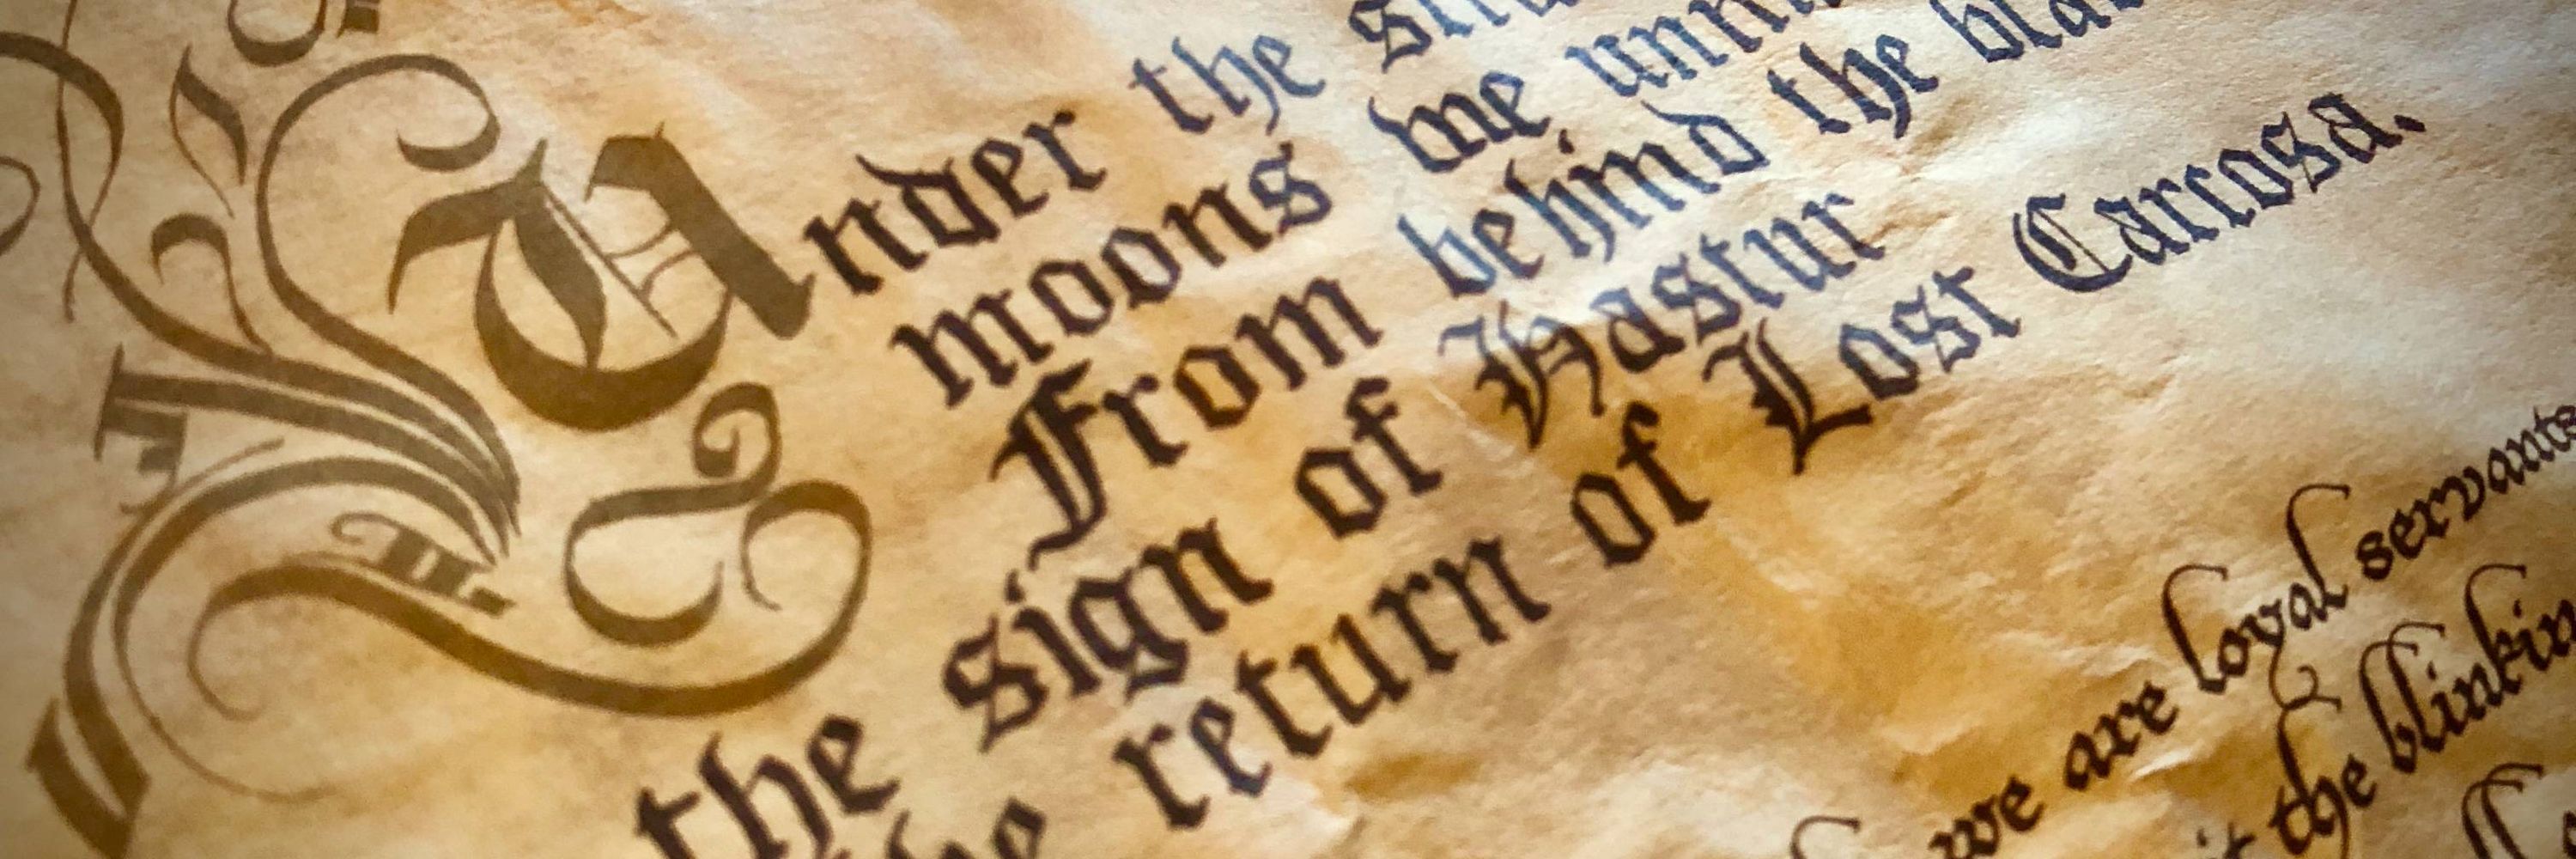 Under the
moons we
From behind the
the sign of Hastur
return of Lost Carcosa.
we are loyal servants
the